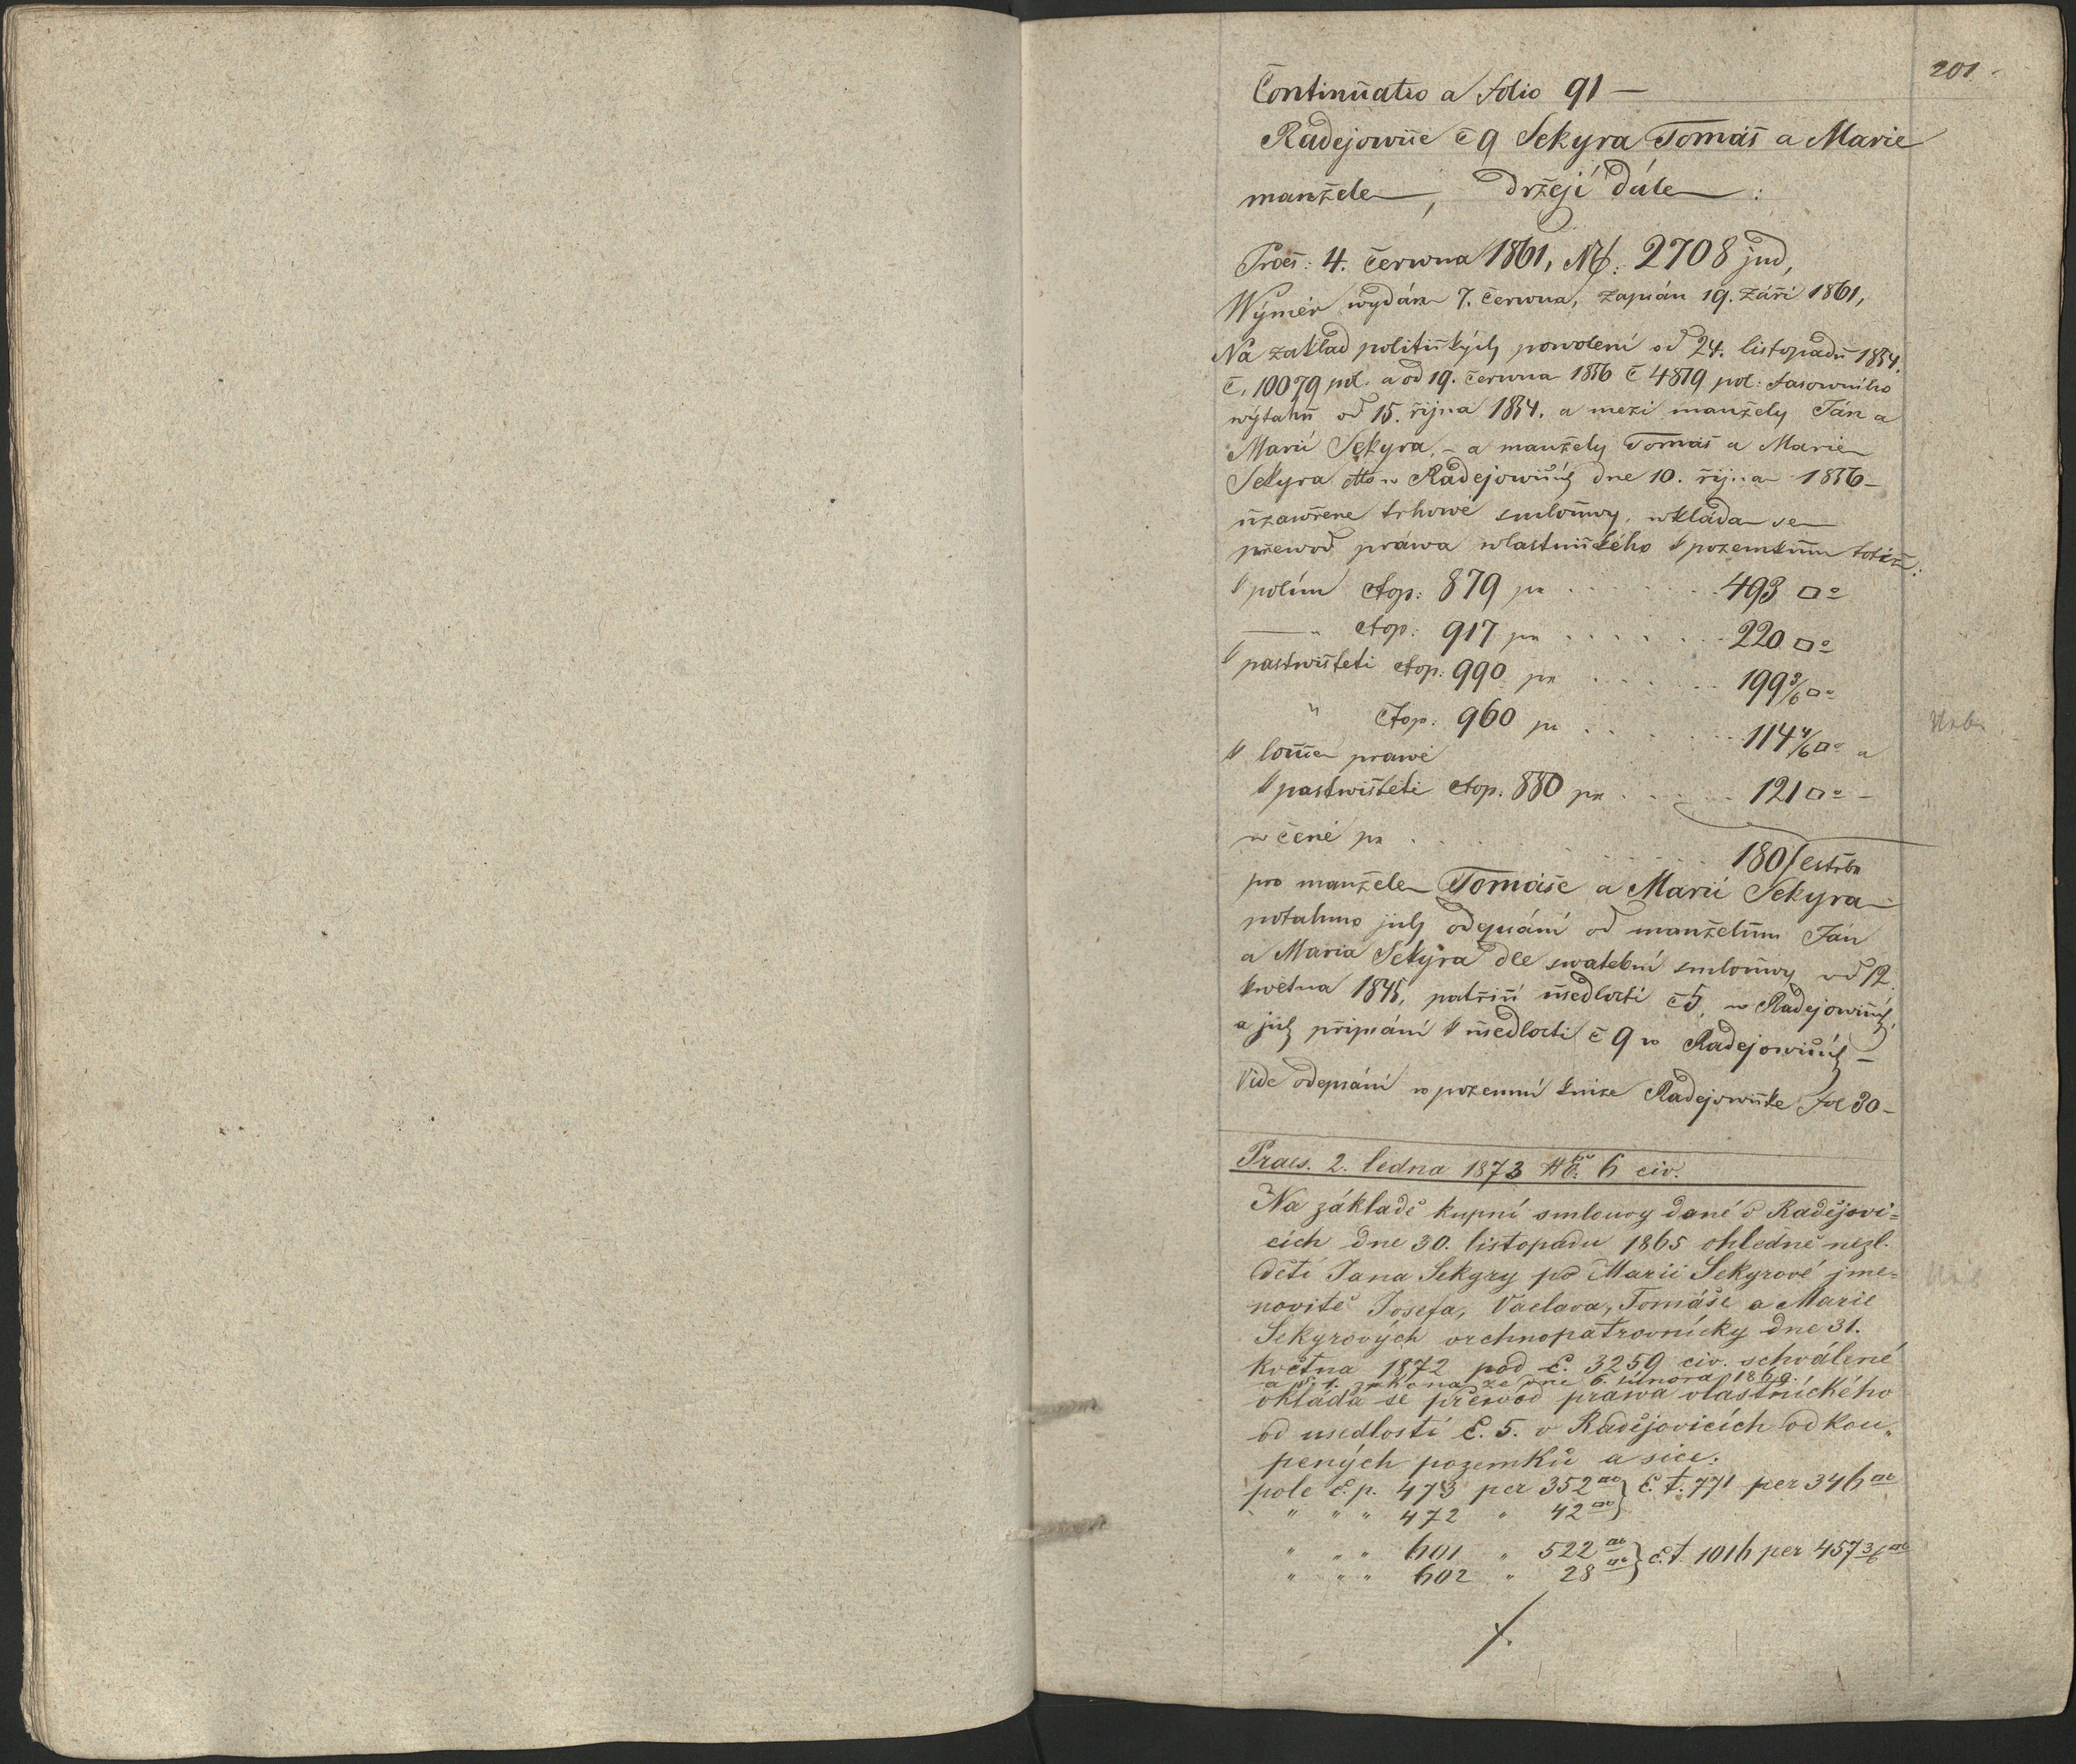 201.
Continuatio a folio 91 —
Radejowice č 9 Sekyra Tomáš a Marie
manžele, držejí dále :
Praes: 4. června 1861, N: 2708 jud,
Wýměr wydán 7. června, zapsán 19. září 1861,
Na základ politických powolení od 24. listopadu 1854.
č. 10079 pol. a od 19. června 1856 č 4819 pol:
wýtahu od 15. října 1854. a mezi manžely Ján a
Marií Sekyra, – a manžely Tomáš a Marie
Sekyra dtto w Radejowicích dne 10. října 1856 –
uzawřene trhowé smlouwy, wkláda se
přewod práwa wlastnického k pozemkům totiž:
k polím čtop: 879 pr . . . . . . 493 □°
— " čtop: 917 pr . . . . . . 220 □°
k pastwišteti čtop: 990 pr . . . . . 199 3/6 □°
" čtop: 960 pr . . . . . 114 4/6 □° a
k louce prawé
k pastwišteti čtop. 880 pr . . . . . 121 □° –
w ceně pr . . . . . . . 180
pro manžele Tomáše a Marii Sekyra
potahmo jich odepsání od manželům Ján
a Maria Sekyra dle swatební smlouwy od 12.
května 1845, patřící usedlosti č 5, w Radejowicích,
a jich připsání k usedlosti č 9 w Radejowicích –
Vide odepsání w pozemní knize Radejowicke fol 30 –
Praes. 2. ledna 1873 No. 6 civ.
Na základě kupní smlouvy dané v Radějovi=
cích dne 30. listopadu 1865 ohledně nezl.
dětí Jana Sekyry po Marii Sekyrové jme=
novitě Josefa, Václava, Tomáše a Marie
Sekyrových vrchnopatrovnícky dne 31.
května 1872 pod č. 3259 civ. schválené
a §. 1. zákona ze dne 6. února 1869.
vkláda se převod prawa vlastníckého
od usedlosti č. 5. v Radějovicích odkou„
pených pozemků a sice:
pole č. p. 473 per 352 □° } č. t. 771 per 346 □°
" " " 472 " 42 □° }
" " " 601 " 522 □° } č. t. 1016 per 457 3/6 □°
" " " 602 " 28 □° }
./.